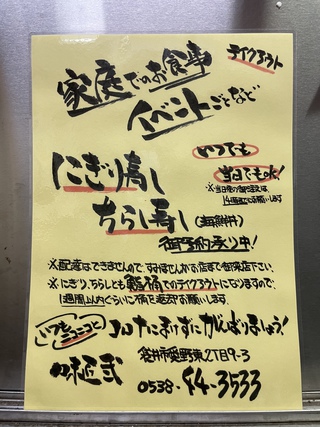 テイクアウト
家庭でのお食事
イベントごとなど
いつでも
当日でもOK!
にぎり寿し
ちらし寿し(海鮮丼)
御予約承り中!
※配達はできませんので、すみませんがお店まで御来店下さい。
※にぎり、ちらしとも鮨桶でのテイクアウトになりますので、
1週間以内ぐらいに桶を返却お願いします。
いつもニコニコ
コロナにまけずにがんばりましょう!
袋井市愛野東2丁目9-3
0538-44-3533